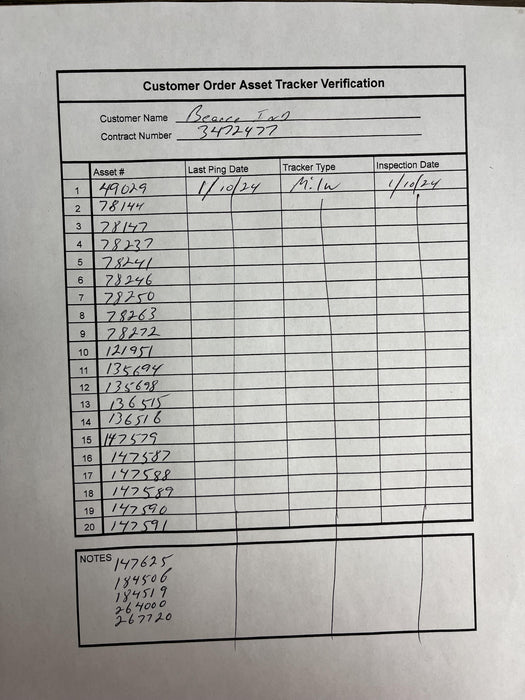 Customer Order Asset Tracker Verification
Customer Name
Contract Number 3472477
Asset # Last Ping Date Tracker Type Inspection Date
1 49029 1/10/24 Milw 1/10/24
2 78144
3 78147
4 78237
5 78241
6 78246
7 78250
8 78263
9 78272
10 121951
11 135694
12 135698
13 136515
14 136516
15 147579
16 147587
17 147588
18 147589
19 147590
20 147591
NOTES 147625
184506
184519
264000
267720